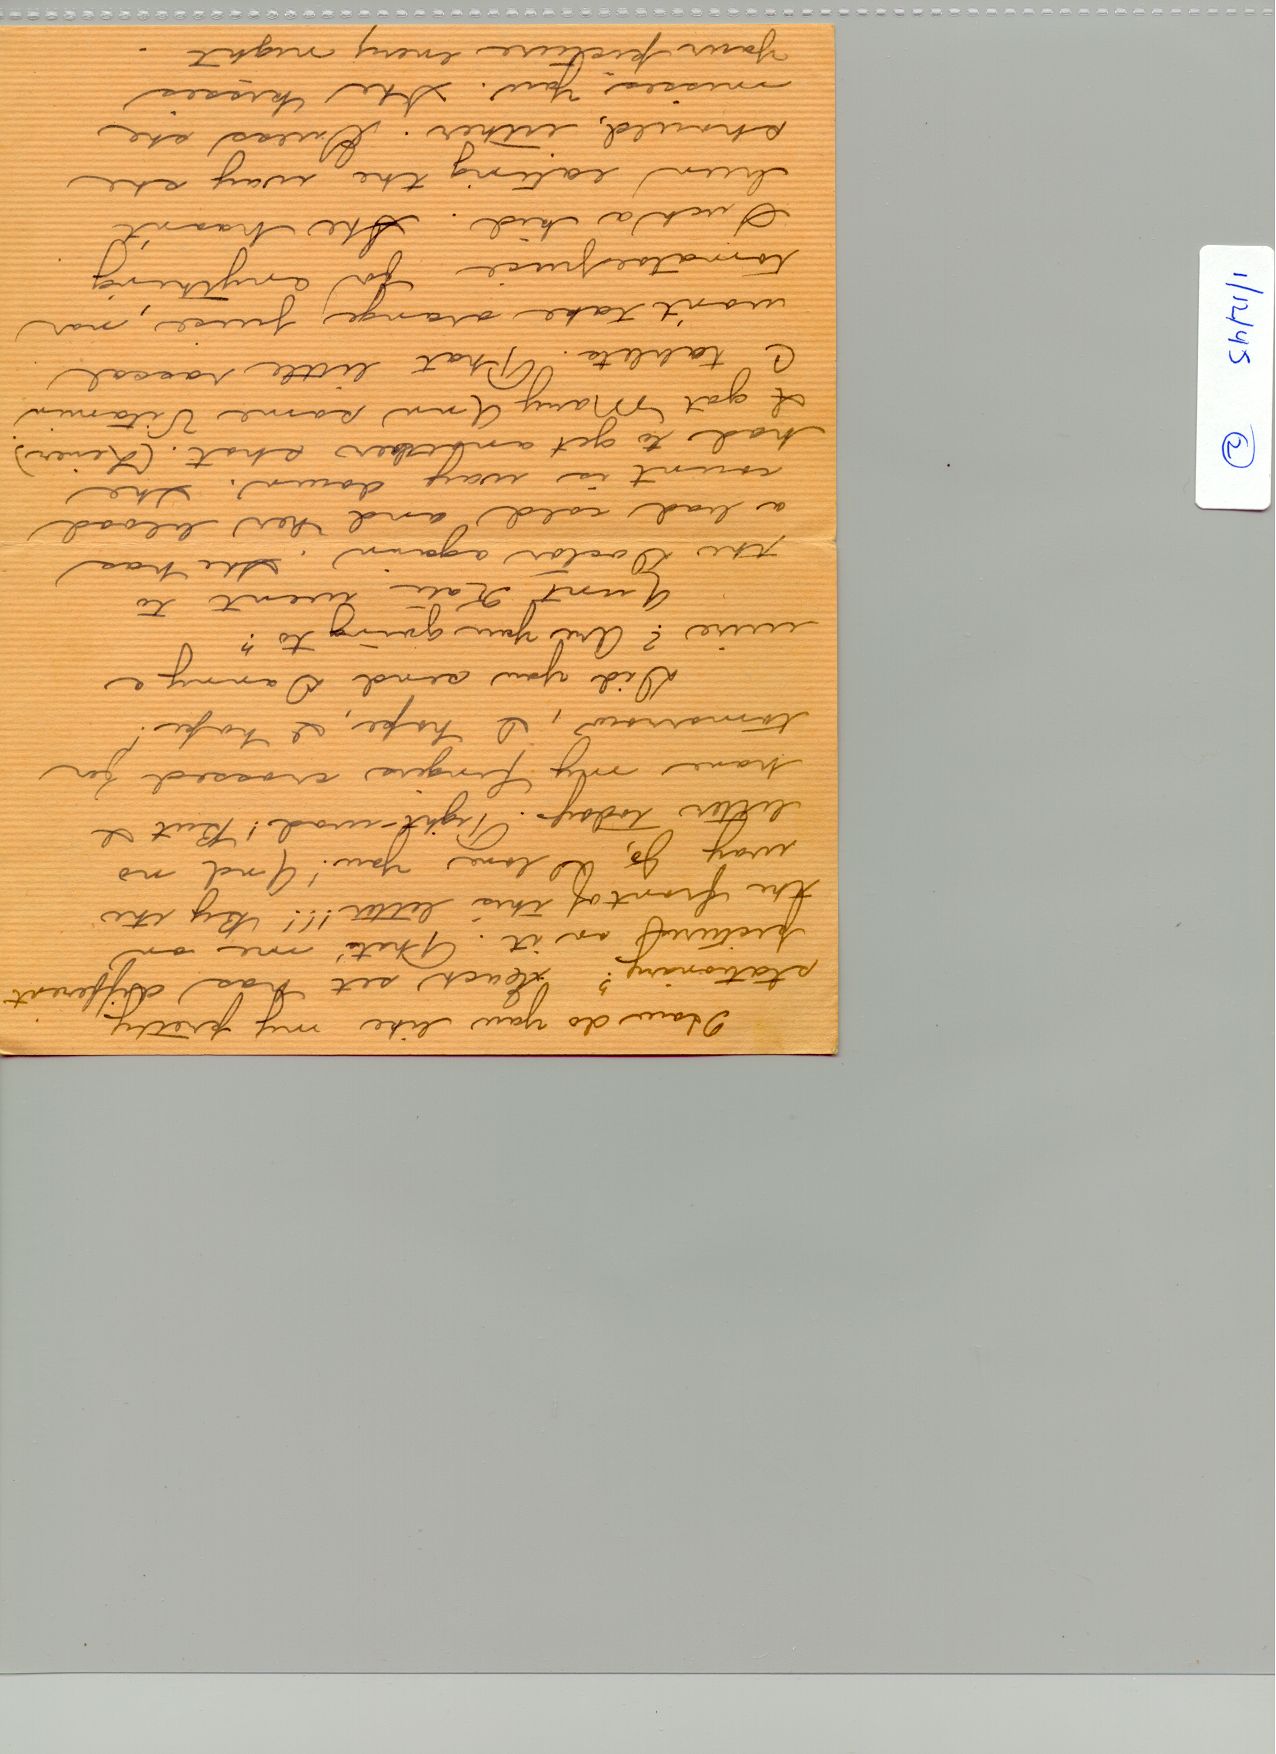 How do you like my pretty
stationary? Each set has different
pictures on it. That's me on
the front of this letter!!! By the
way Jo, I love you! And no
letter today. Tight-wad! But I
have my fingers crossed for
tomorrow, I hope, I hope!
Did you send Danny a
wire? Are you going to?
Aunt Kate went to
the Doctor again. She has
a bad cold and her blood
count is way down. She
had to get another shot. (Liver)
I got Mary Ann some Vitamin
C tablets. That little rascal
won't take orange juice, nor
tomatoe juice for anything
Such a kid. She hasn't
been eating the way she
should, either. Guess she
misses you. She kisses
your picture every night.
1/12/45 (2)